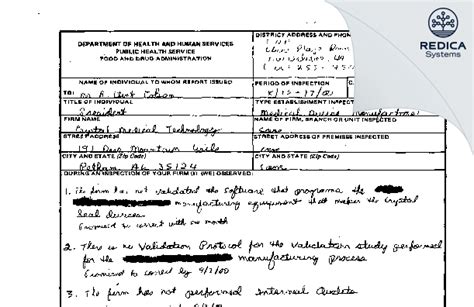 DISTRICT ADDRESS AND PHON
DEPARTMENT OF HEALTH AND HUMAN SERVICES
PUBLIC HEALTH SERVICE
FOOD AND DRUG ADMINISTRATION
REDICA
Systems
NAME OF INDIVIDUAL TO WHOM REPORT ISSUED
PERIOD OF INSPECTION
C.
TO:
TITLE OF INDIVIDUAL
TYPE ESTABLISHMENT INSPECT
President
Medical Device Manufacturer
FIRM NAME
NAME OF FIRM, BRANCH OR UNIT INSPECTED
Crystal Medical Technology
same
STREET ADDRESS
STREET ADDRESS OF PREMISES INSPECTED
Deer Mountain Circle
same
CITY AND STATE (Zip Code)
CITY AND STATE (Zip Code)
Pelham, AL 35124
same
DURING AN INSPECTION OF YOUR FIRM (I) (WE) OBSERVED:
1. The firm has not validated the software that programs the
manufacturing equipment that makes the Crystal
Seal devices
Promised to correct with one month
2. There is no Validation Protocol for the validation study performed
for the manufacturing process
Promised to correct by 9/2/00
3. The firm has not performed Internal Audits